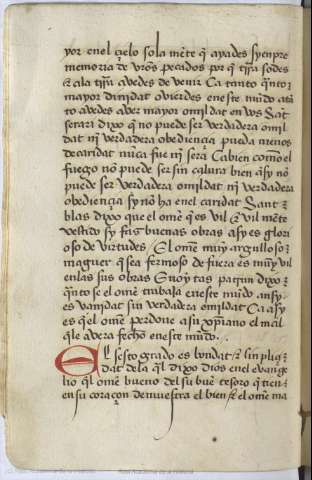 yor enel çielo sola mẽte q̃ ayades syenpre
memoria de vr̃os pecados por q̃ trr̃a sodes
& ala trr̃a avedes de venir Ca tanto quãto
mayor dinidat ovierdes eneste mũdo atã
to avedes aver mayor omildat en vos Sãt
dixo q̃ no puede ser verdadera omil
dat nj̃ verdadera obediencia pueda menos
de caridat nũca fue nj̃ sera Ca bien como el
fuego nõ puede ser sin calura bien asy nõ
puede ser verdadera omildat nj̃ verdadera
obediencia sy nõ ha enel caridat Sant
blas dixo que el ome q̃ es vil & vil mẽte
vestido sy faz buenas obras asy es glori
oso de virtudes El ome muy argulloso
maguer q̃ sea fermoso de fuera es muy vil
enlas sus obras dixo
quãto se el ome trabaja eneste mũdo
es vanidat sin verdadera omildat Ca asy
es q̃l ome perdone asu xp̃iano el mal
q̃le avera fecho eneste mũdo.
El sesto grado es bondat & sinpliçi
dat dela q̃l dixo dios enel evange
lio q̃l ome bueno del su buẽ tesoro q̃ tien
en su coraçon demuestra el bien & el ome ma